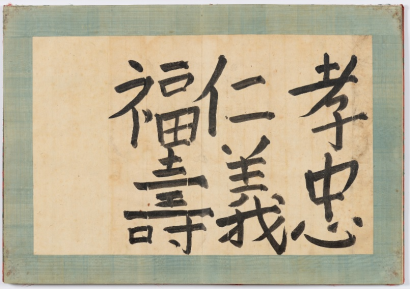 孝忠
仁義
福壽